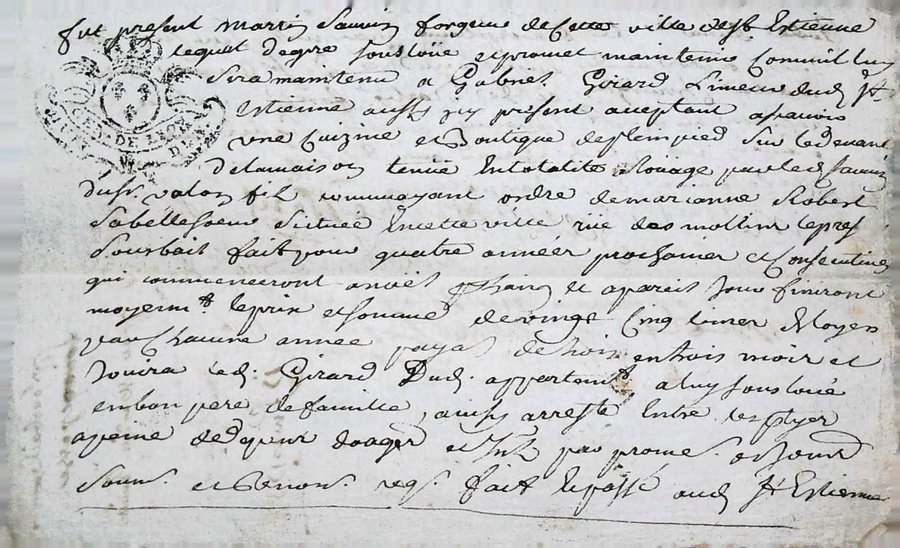 fut present Martin Sauvin forgeur de Cette ville de st Estienne
lequel de gre sousloüe et promet maintenir comme il luy
sera maintenu a Gabriel Girard Limeur dud st
Estienne aussy icy present aceptant ascavoir
une Cuizine et Boutique de plein pied sur le devant
de la maison tenüe En totalité a loüage par led Sauvin
du sr. valon fil comme ayant ordre de marianne Robert
sa belle soeur Située En cette ville rüe des mollins le pres
Sousbail fait pour quatre années prochaines et Consecutives
qui commenceront a noël prochain et a pareil jour finiront
moyent. le prix et somme de vingt Cinq livres de loyer
par Chacune année payab de trois en trois mois et
Jouira led. Girard Dud. appartent. a luy sousloüé
en bon pere de famille, ainsy arresté Entre les partyes
a peine de dommages et Int par promes. et serment
soum. et Renon. req. fait et passé aud St Estienne
GEN DE LYON